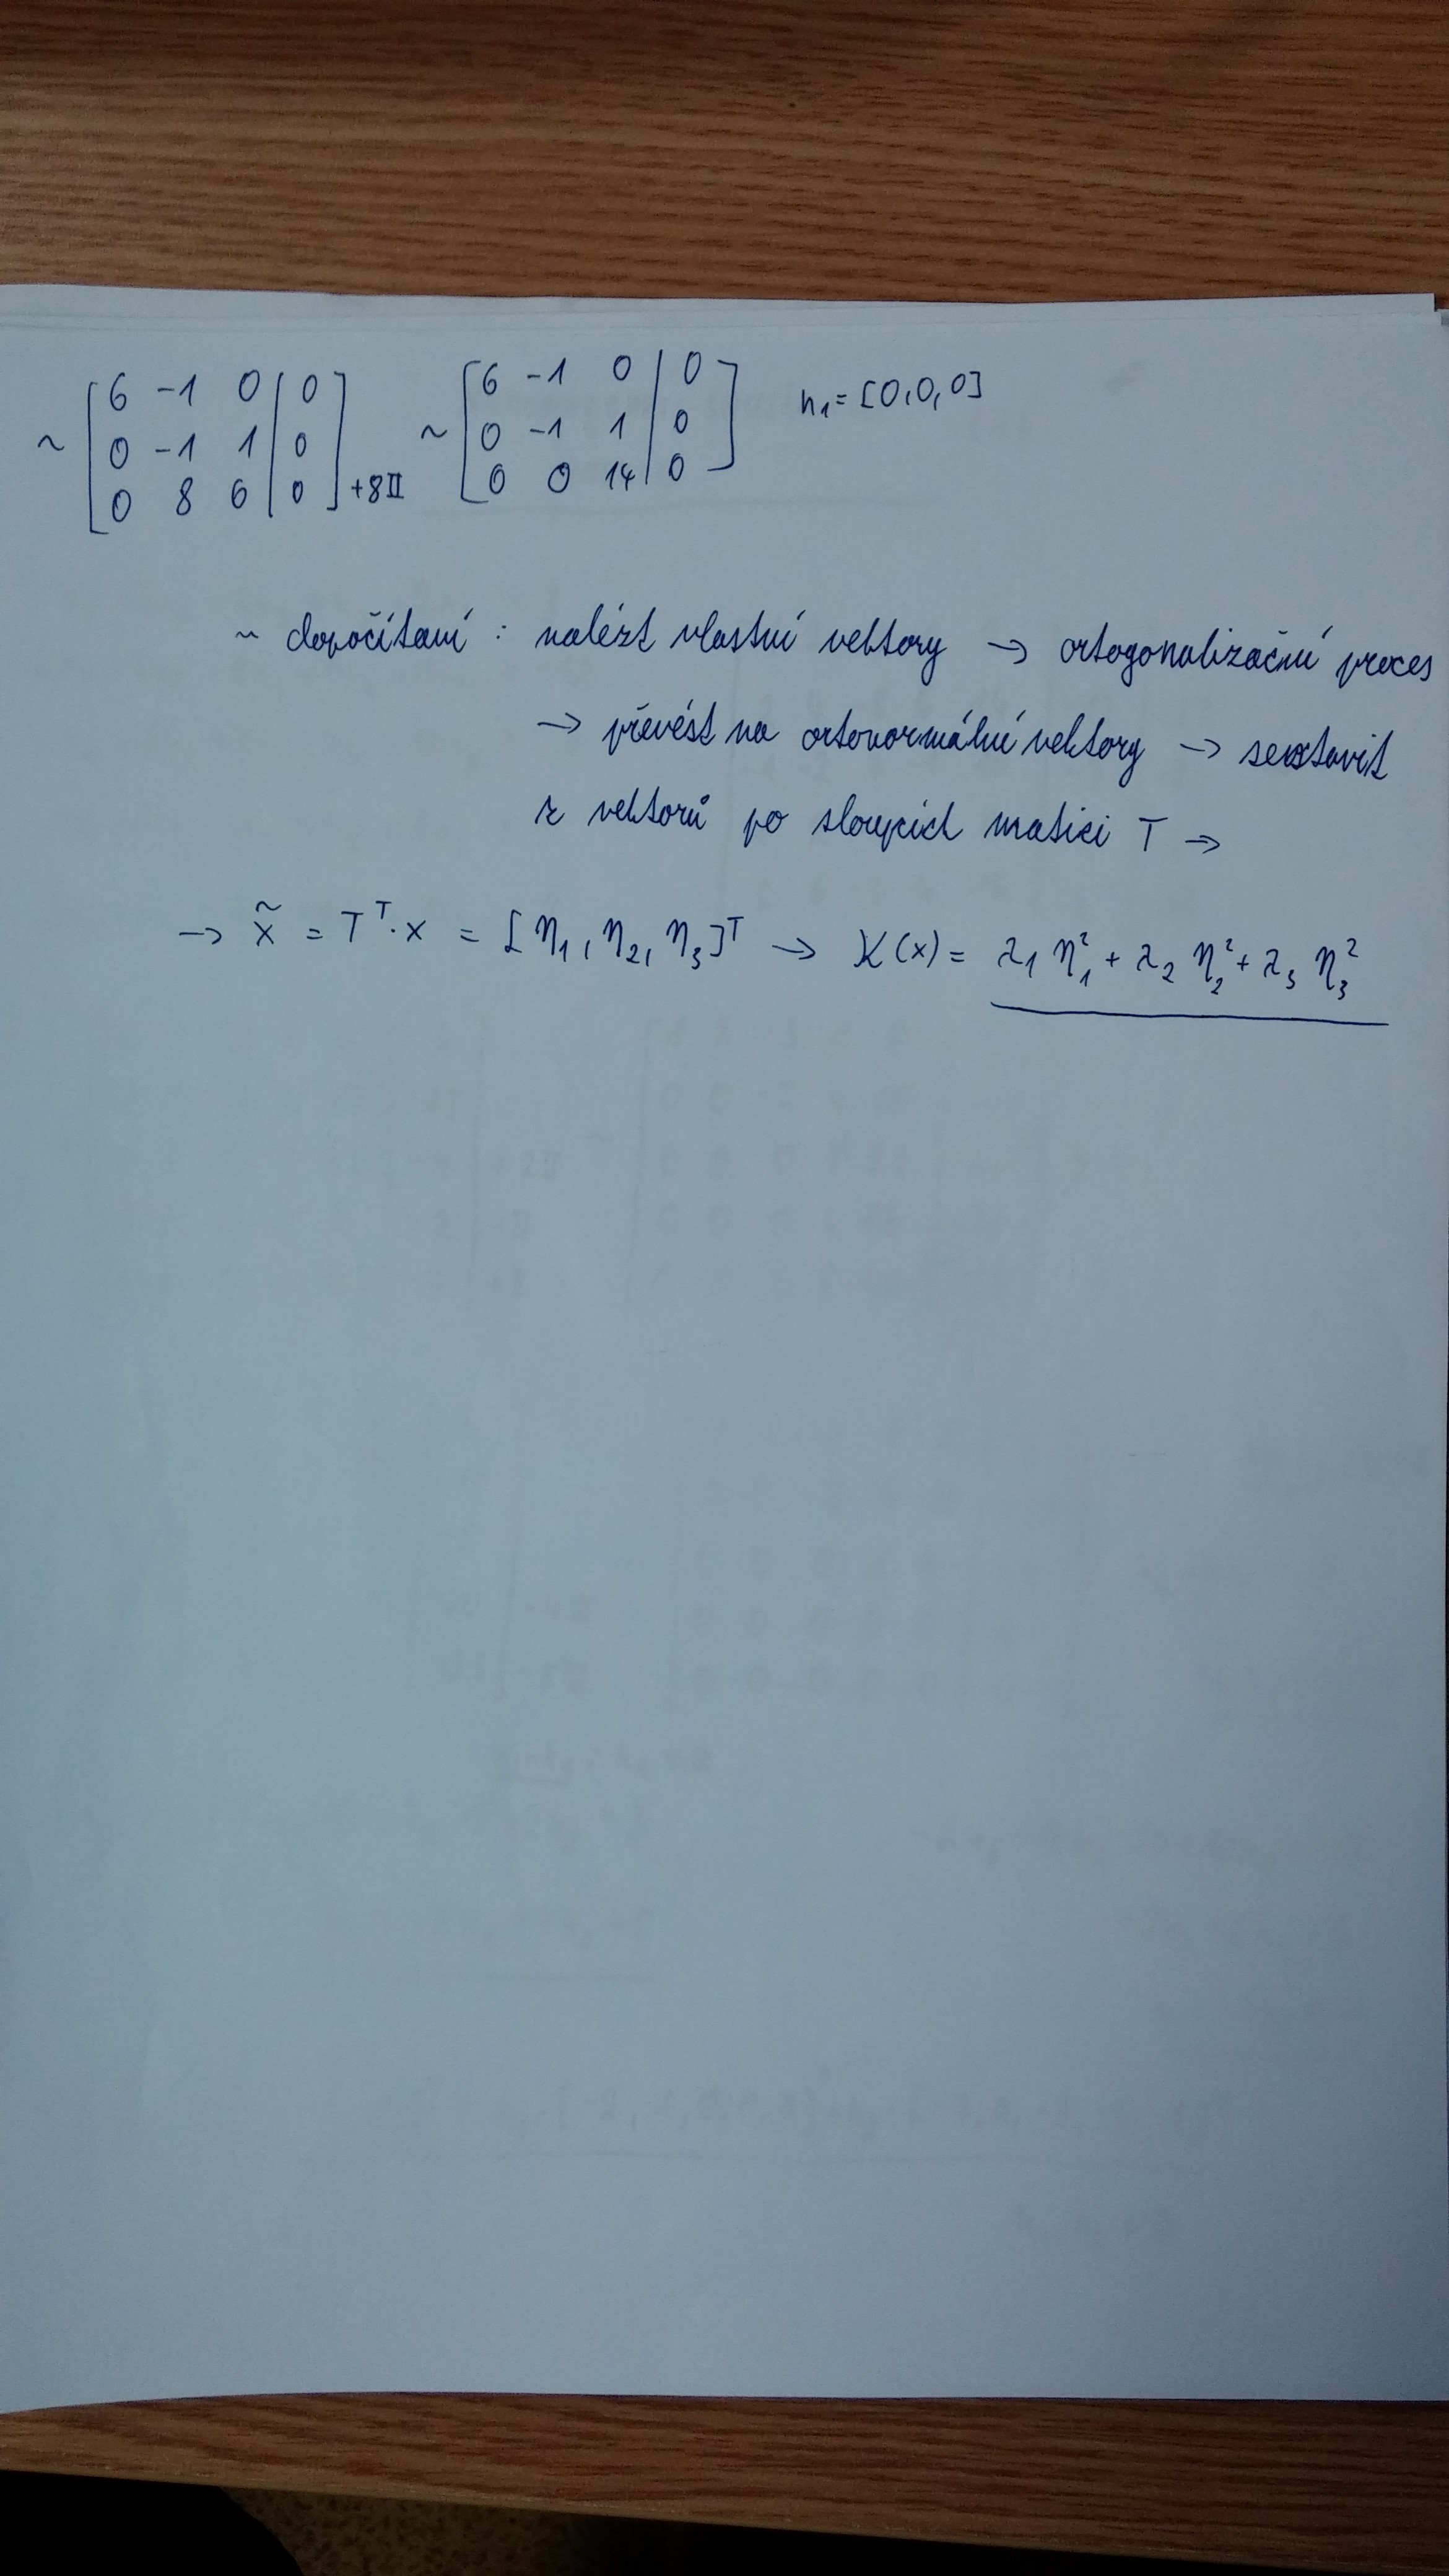 ~ [ 6 -1 0 | 0 ; 0 -1 1 | 0 ; 0 8 6 | 0 ] +8II ~ [ 6 -1 0 | 0 ; 0 -1 1 | 0 ; 0 0 14 | 0 ] h₁= [0,0,0]
~ dopočítaní : nalézt vlastní vektory → ortogonalizační proces
→ převést na ortonormální vektory → sestavit
z vektorů po sloupcích matici T →
→ x̃ = Tᵀ·x = [η₁, η₂, η₃]ᵀ → K(x)= λ₁ η₁² + λ₂ η₂² + λ₃ η₃²